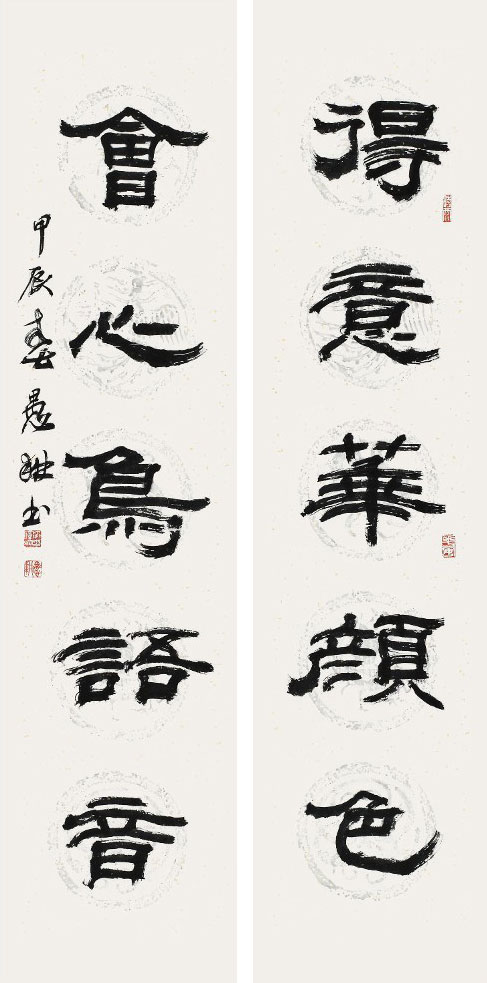 得意華顏色
會心鳥語音
甲辰春愚耕书